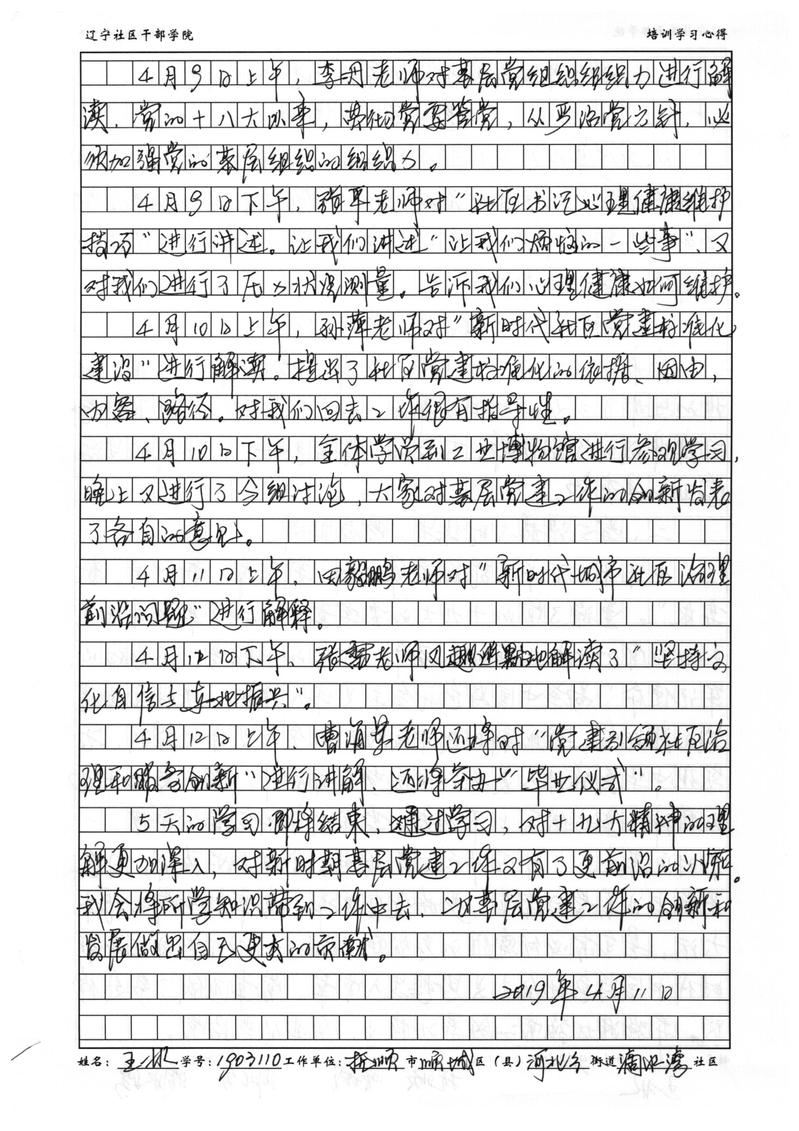 辽宁社区干部学院 培训学习心得
4月9日上午，李丹老师对基层党组织组织力进行解
读，党的十八大以来，党要管党，从严治党方针，必
须加强党的基层组织的组织力。
4月9日下午，张平老师对“社区书记心理健康维护
技巧”进行讲述。让我们讲述“让我们烦恼的一些事”，又
对我们进行了压力状况测量。告诉我们心理健康如何维护。
4月10日上午，孙萍老师对“新时代社区党建标准化
建设”进行解读。提出了社区党建标准化的依据、因由，
内容、路径。对我们回去工作很有指导性。
4月10日下午，全体学员到工业博物馆进行参观学习，
晚上又进行了分组讨论，大家对基层党建工作的创新发表
了各自的意见。
4月11日上午，田毅鹏老师对“新时代城市社区治理
前沿问题”进行解释。
4月12日下午，张老师风趣幽默地解读了“坚持文
化自信与东北振兴”。
4月12日上午，曹海老师还将对“党建引领社区治
理和服务创新”进行讲解，还将举办“毕业仪式”。
5天的学习即将结束，通过学习，对十九大精神的理
解更加深入，对新时期基层党建工作又有了更前沿的了解。
我会将所学知识带到工作中去，为基层党建工作的创新和
发展做出自己更大的贡献。
2019年4月11日
姓名：王 学号：1903110 工作单位：抚顺市顺城区（县）河北乡街道湾社区